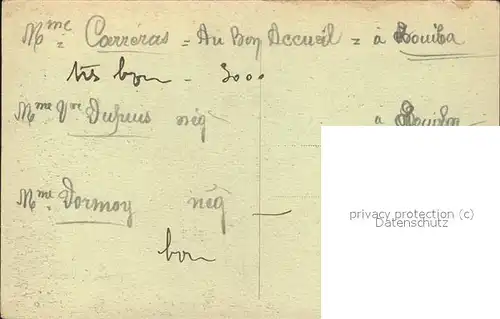 Mme = Carréras = Au Bon Accueil = à Bouïba
très bon - 3000
Mme Vve Dupuis nég à Bouïba
privacy protection (c)
Datenschutz
Mme Dormoy nég —
bon